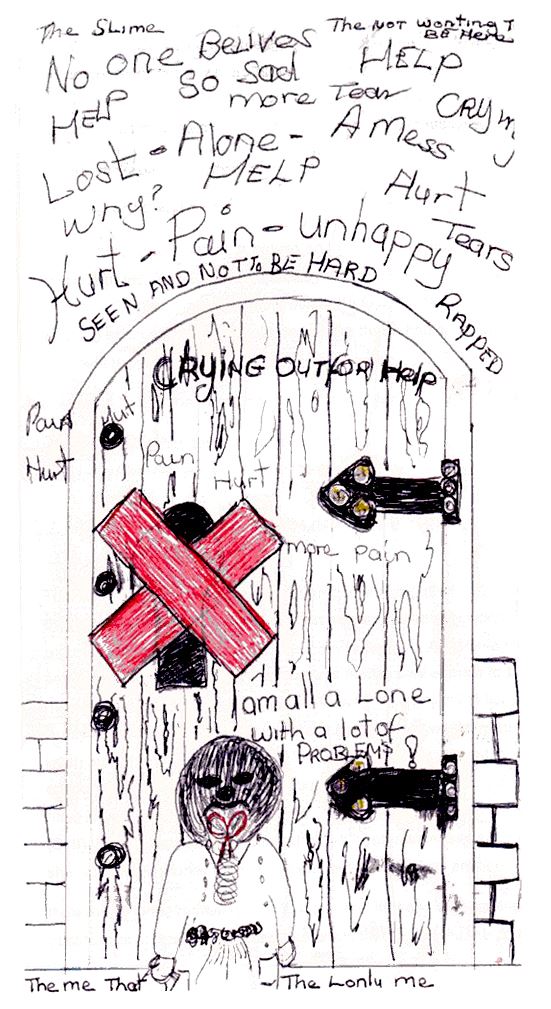 The SLIME
The NOT wonting T
BE Here
No one Belives
HELP
So Sad
HELP
more Tear
CRYin
Lost - Alone - A mess
Why?
HELP
Hurt
Hurt - Pain - unhappy
Tears
SEEN AND NOT To BE HARD
RAPPED
CRYING OUT FOR Help
Pain Hut
Hurt
Pain
Hurt
more pain
I am all a Lone
with a lot of
PROBLEMS!
The me That
- The Lonlu me